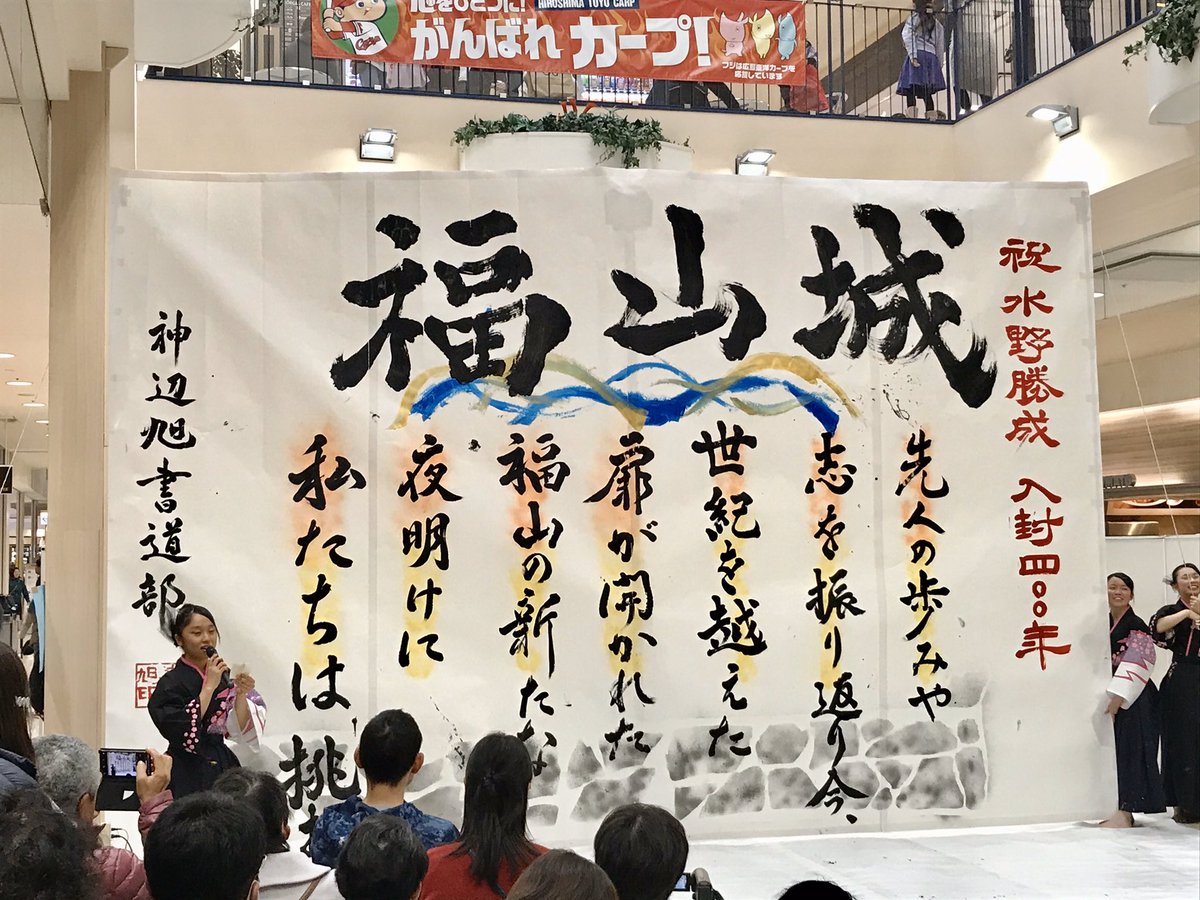 心をひとつに!
HIROSHIMA TOYO CARP
がんばれ カープ!
フジは広島東洋カープを
応援しています
福山城
祝 水野勝成 入封四〇〇年
先人の歩みや
志を振り返り今、
世紀を越えた
扉が開かれた
福山の新たな
夜明けに
私たちは 挑
神辺旭書道部